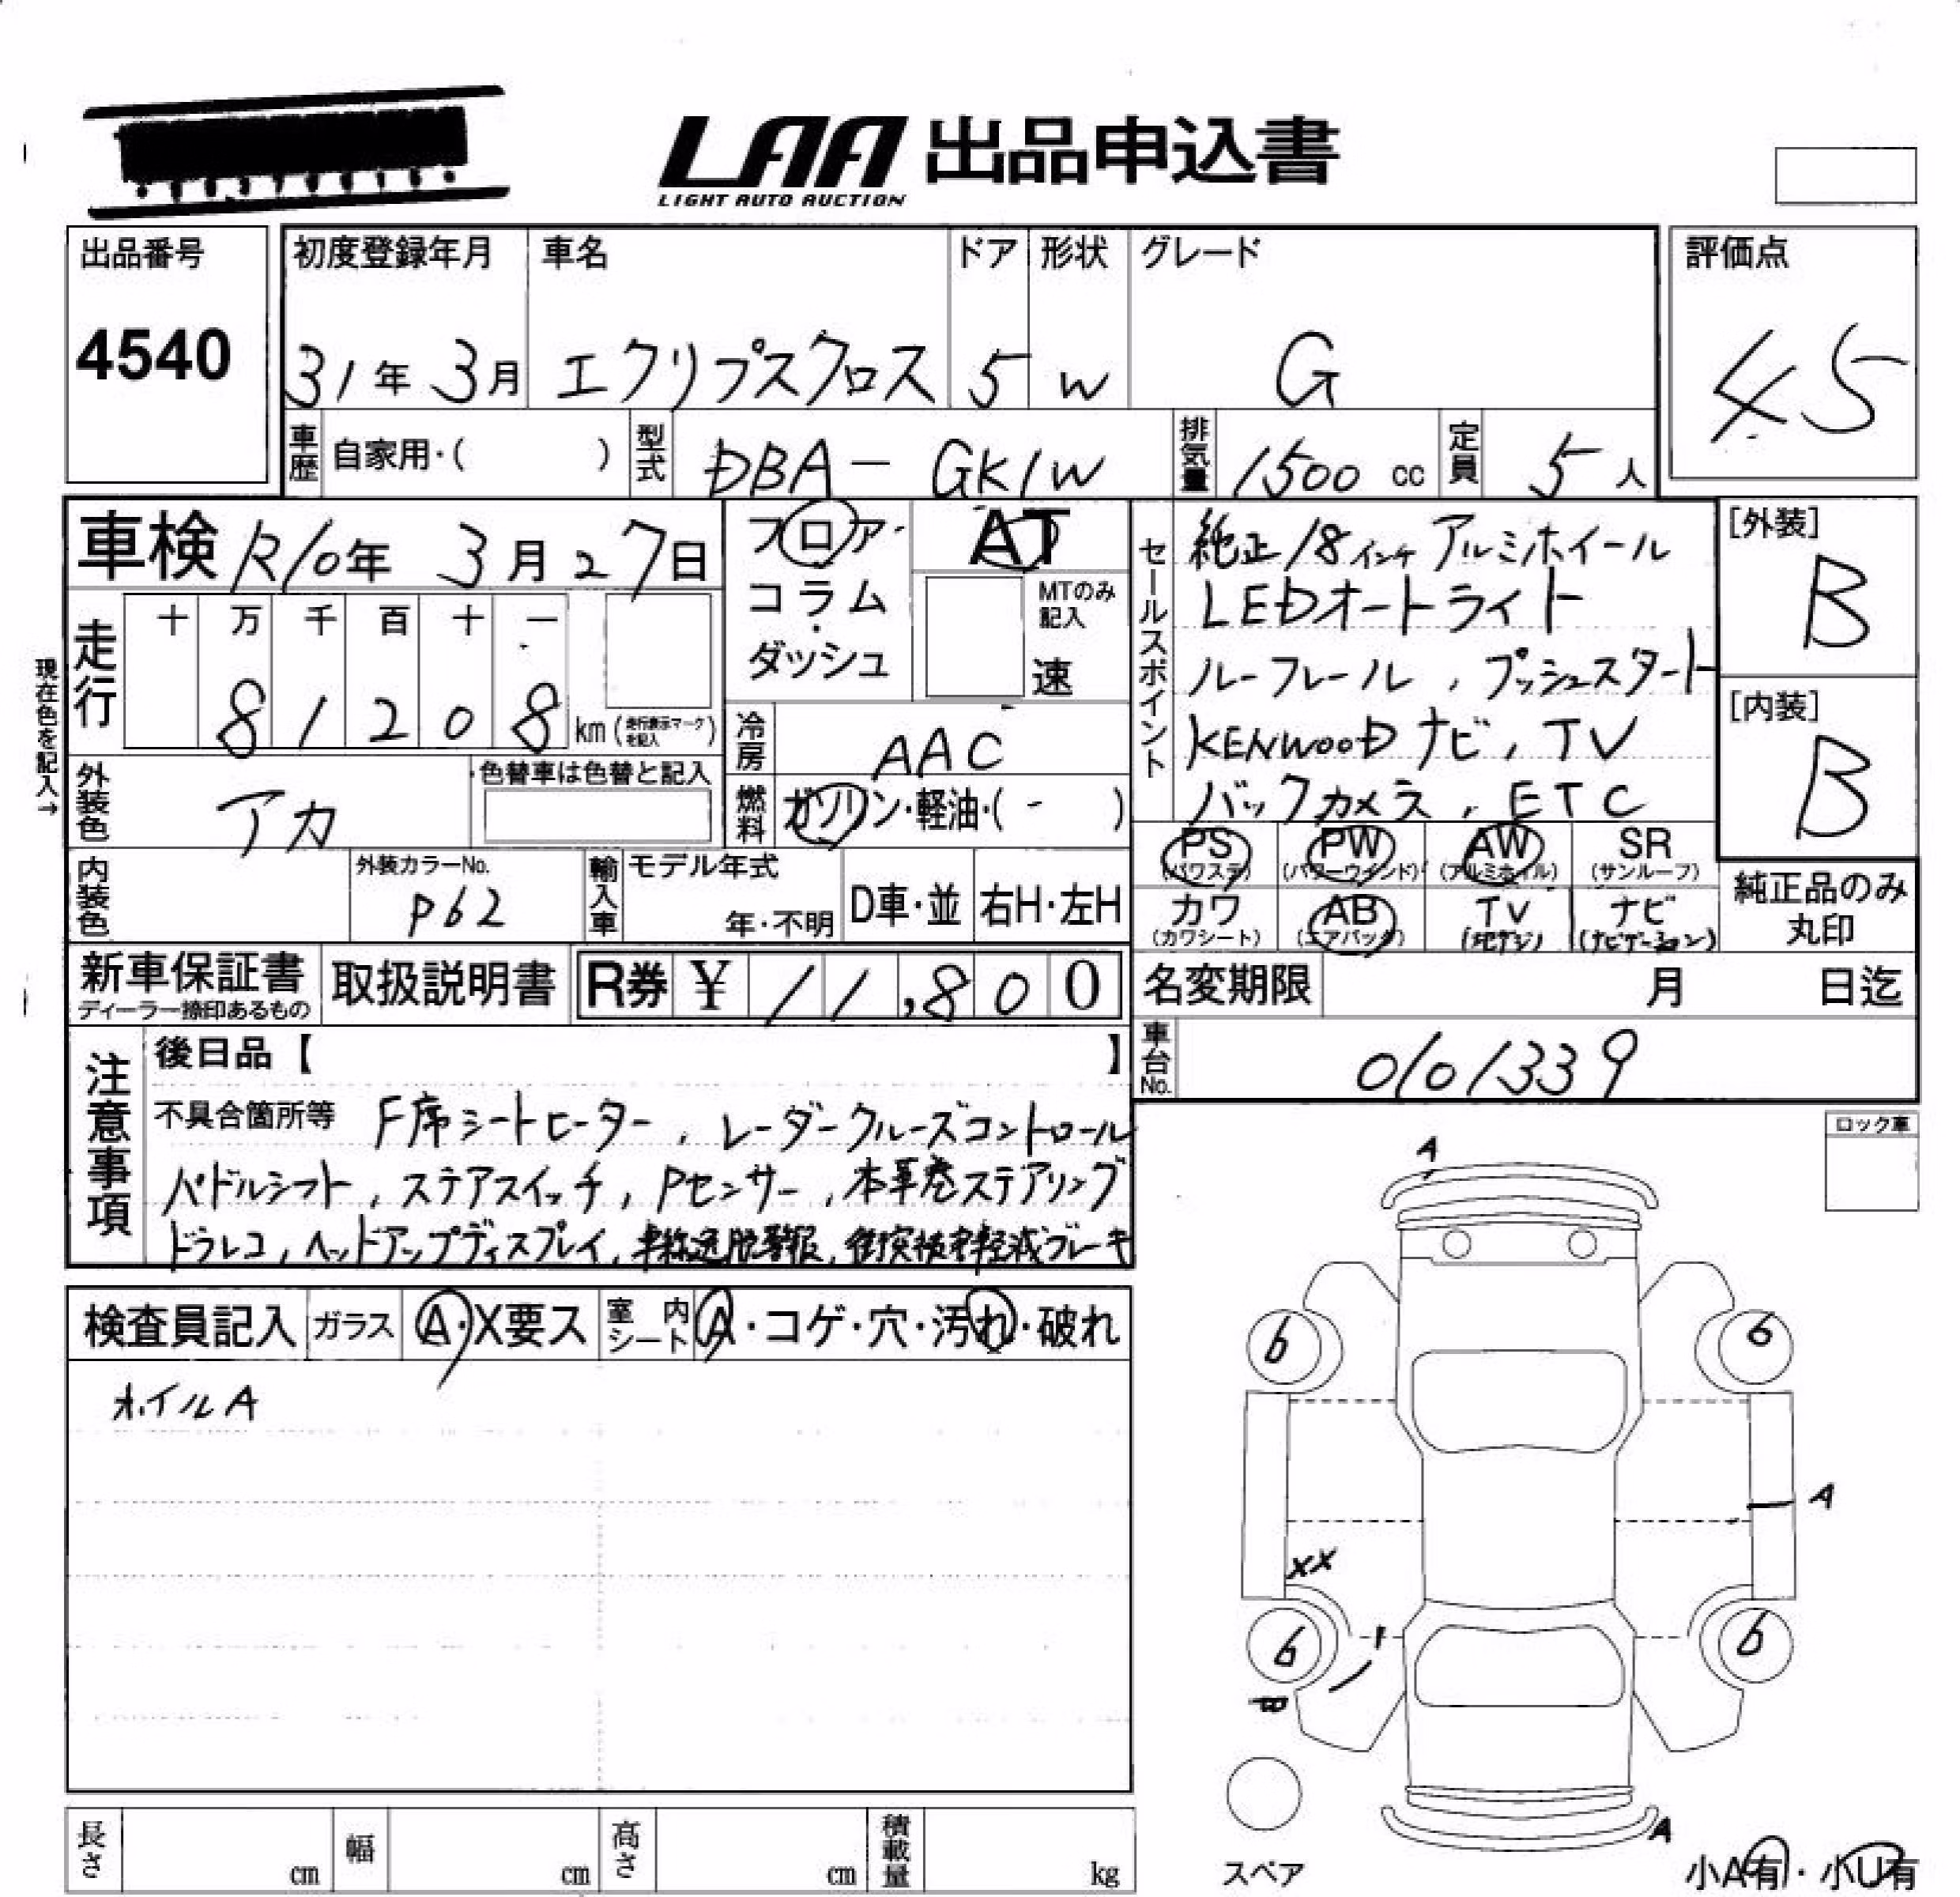 LAA 出品申込書
LIGHT AUTO AUCTION
出品番号
4540
初度登録年月
31年3月
車名
エクリプスクロス
ドア
5
形状
W
グレード
G
評価点
4.5
車歴 自家用・( )
型式 DBA-GK1W
排気量 1500 cc
定員 5人
車検 R10年 3月27日
フロア・
コラム・
ダッシュ
AT
MTのみ記入
速
セールスポイント
純正18インチアルミホイール
LEDオートライト
ルーフレール, プッシュスタート
KENWOODナビ, TV
バックカメラ, ETC
[外装]
B
[内装]
B
現在色を記入→
走行 十 万 千 百 十 一
8 1 2 0 8 km (走行表示マークを記入)
冷房 AAC
外装色 アカ
色替車は色替と記入
燃料 ガソリン・軽油・(- )
内装色
外装カラーNo.
P62
輸入車 モデル年式
年・不明
D車・並
右H・左H
PS
(パワステ)
PW
(パワーウインド)
AW
(アルミホイル)
SR
(サンルーフ)
カワ
(カワシート)
AB
(エアバッグ)
TV
(地デジ)
ナビ
(ナビゲーション)
純正品のみ
丸印
新車保証書
ディーラー捺印あるもの
取扱説明書
R券 ¥ 11,800
名変期限 月 日迄
車台No. 0101339
注意事項
後日品【 】
不具合箇所等 F席シートヒーター, レーダークルーズコントロール
パドルシフト, ステアスイッチ, Pセンサー, 本革巻ステアリング
ドラレコ, ヘッドアップディスプレイ, 車線逸脱警報, 衝突被害軽減ブレーキ
ロック車
検査員記入 ガラス A・X要ス 室内シート A・コゲ・穴・汚れ・破れ
ホイルA
A
6
6
A
XX
6
6
A
スペア
小A有・小U有
長さ cm
幅 cm
高さ cm
積載量 kg